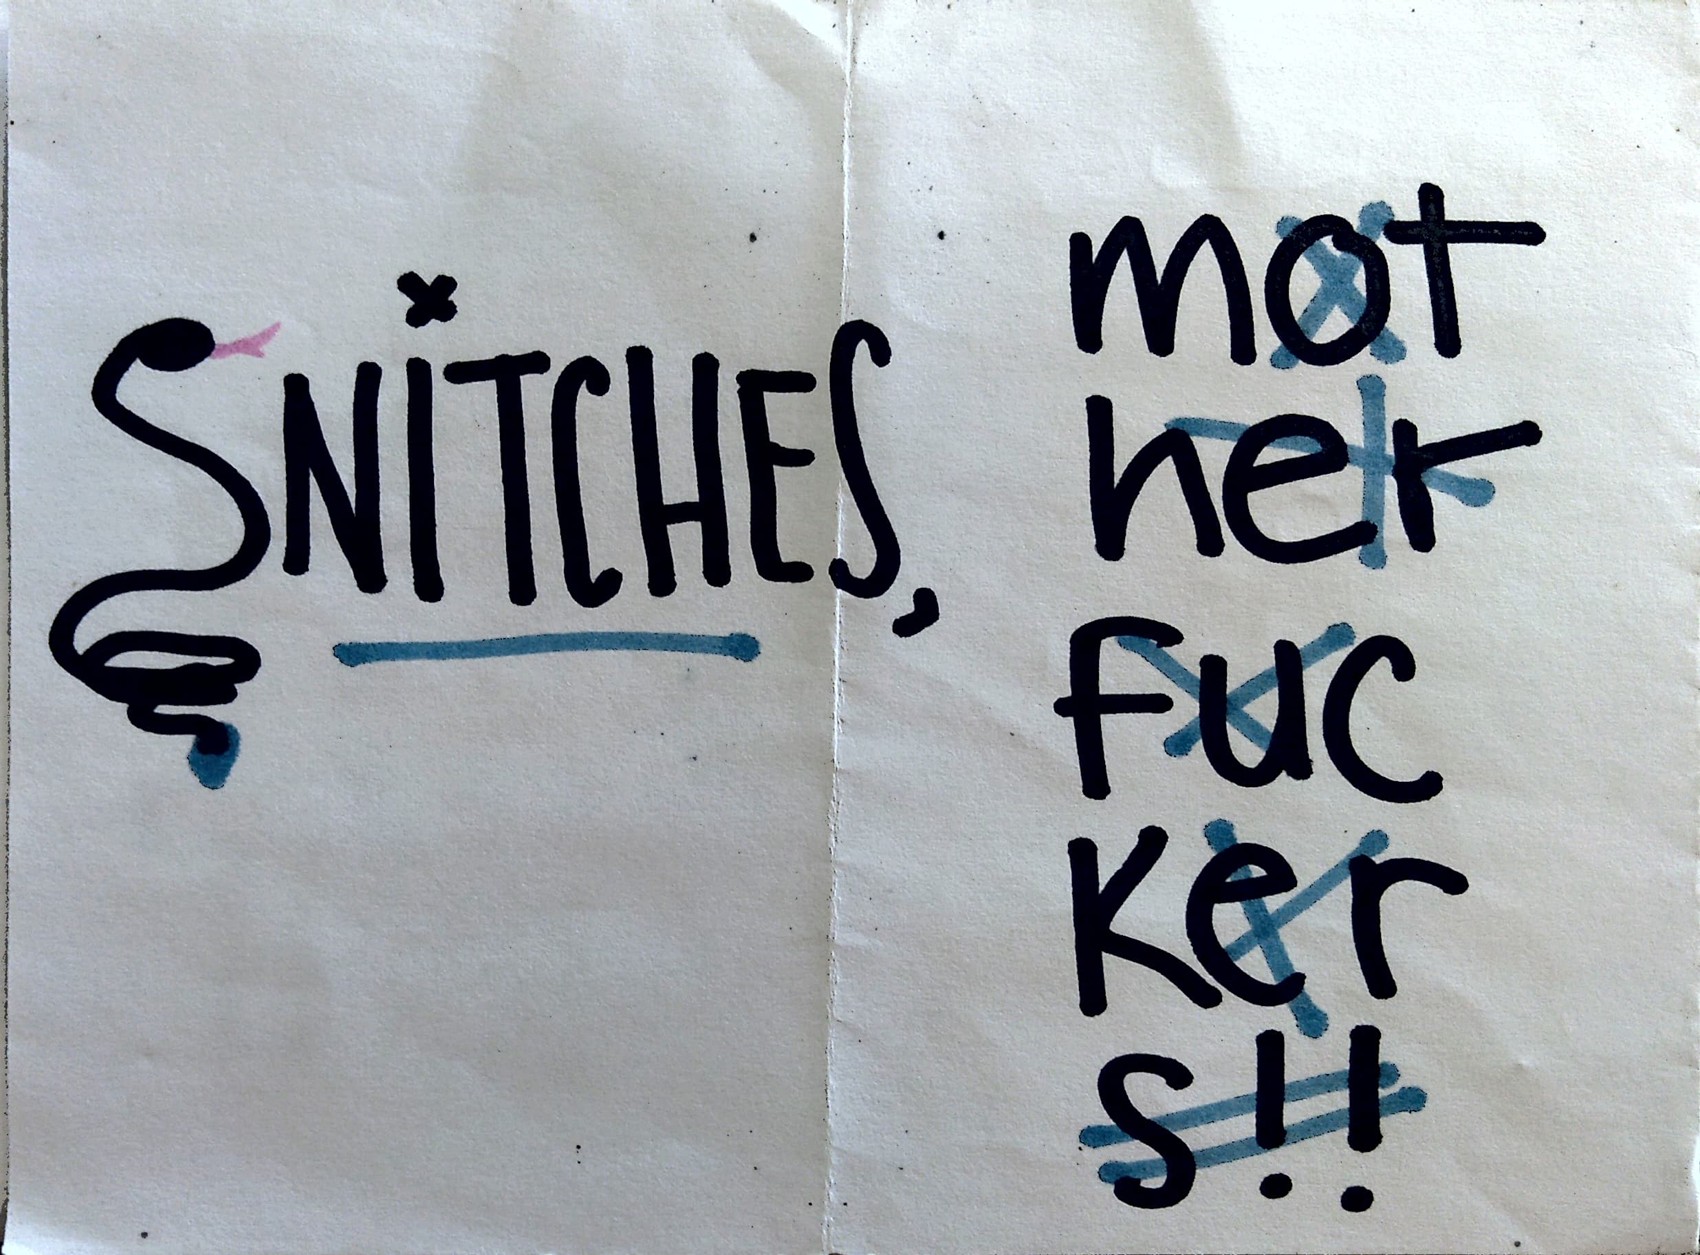 SNiTCHES,
mot
her
fuc
ker
s!!